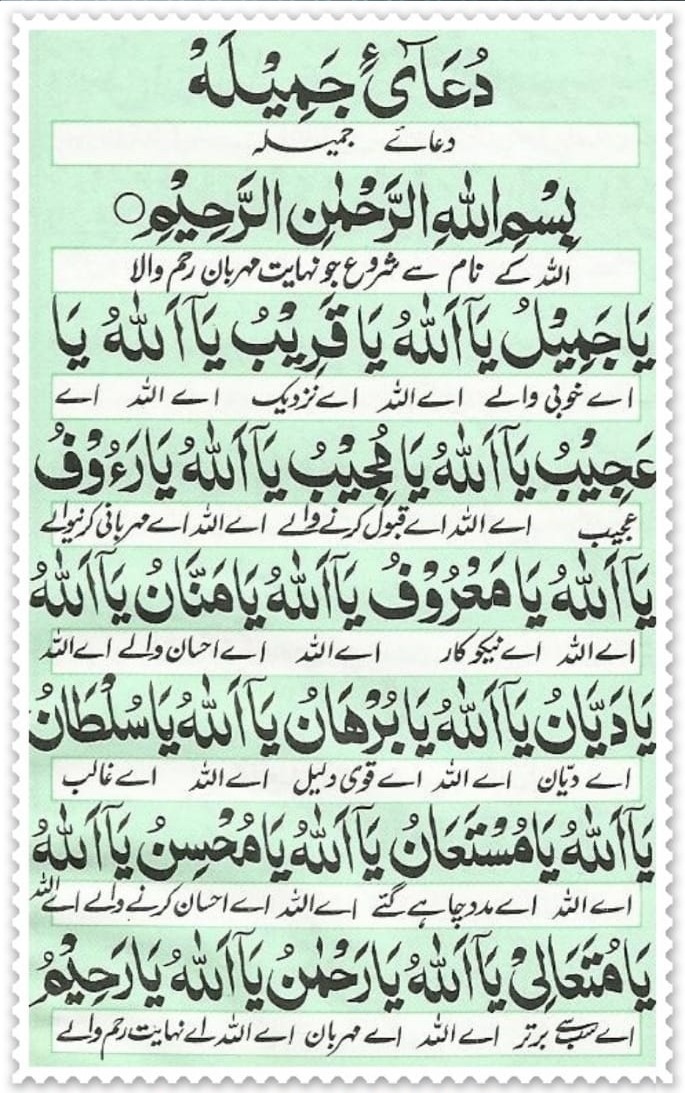 دُعَآئِ جَمِيْلَهْ
دعائے جمیلہ
بِسْمِ اللهِ الرَّحْمٰنِ الرَّحِيْمِ○
اللہ کے نام سے شروع جو نہایت مہربان رحم والا
يَا جَمِيْلُ يَآ اَللهُ يَا قَرِيْبُ يَآ اَللهُ يَا
اے خوبی والے اے اللہ اے نزدیک اے اللہ اے
عَجِيْبُ يَآ اَللهُ يَا مُجِيْبُ يَآ اَللهُ يَا رَءُوْفُ
عجیب اے اللہ اے قبول کرنے والے اے اللہ اے مہربانی کرنیوالے
يَآ اَللهُ يَا مَعْرُوْفُ يَآ اَللهُ يَا مَنَّانُ يَآ اَللهُ
اے اللہ اے نیکوکار اے اللہ اے احسان والے اے اللہ
يَا دَيَّانُ يَآ اَللهُ يَا بُرْهَانُ يَآ اَللهُ يَا سُلْطَانُ
اے دیّان اے اللہ اے قوی دلیل اے اللہ اے غالب
يَآ اَللهُ يَا مُسْتَعَانُ يَآ اَللهُ يَا مُحْسِنُ يَآ اَللهُ
اے اللہ اے مدد چاہے گئے اے اللہ اے احسان کرنے والے اے اللہ
يَا مُتَعَالِيْ يَآ اَللهُ يَا رَحْمٰنُ يَآ اَللهُ يَا رَحِيْمُ
اے سب سے برتر اے اللہ اے مہربان اے اللہ اے نہایت رحم والے